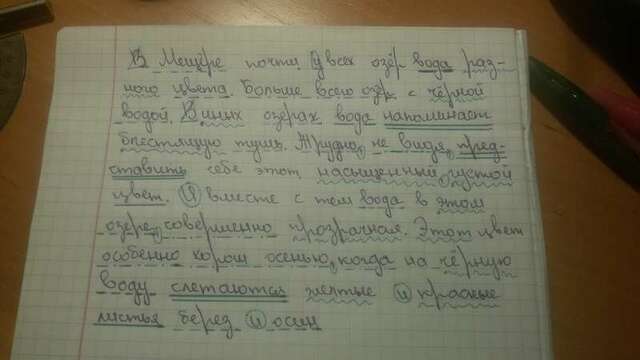 В Мещёре почти у всех озёр вода раз-
ного цвета. Больше всего озёр с чёрной
водой. В иных озерах вода напоминает
блестящую тушь. Трудно, не видя, пред-
ставить себе этот насыщенный, густой
цвет. И вместе с тем вода в этом
озере совершенно прозрачная. Этот цвет
особенно хорош осенью, когда на чёрную
воду слетаются желтые и красные
листья берез и осин